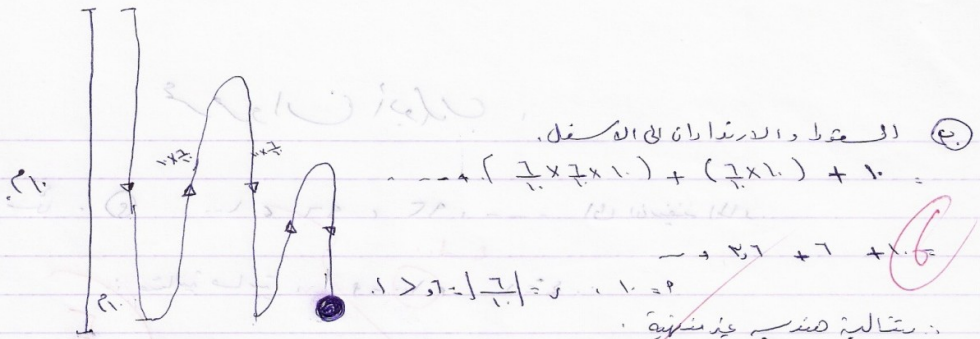 ب السقوط والارتدادات الى الاسفل.
= ١٠ + (١٠ × ٦/١٠) + (١٠ × ٦/١٠ × ٦/١٠) + ...
= ١٠ + ٦ + ٣,٦ + ...
٩ = ١٠ ، ر = |٦/١٠| = ٦, < ١
∴ متتالية هندسية غير منتهية .
١٠م
١٠م
١٠×٦/١٠
١٠×٦/١٠